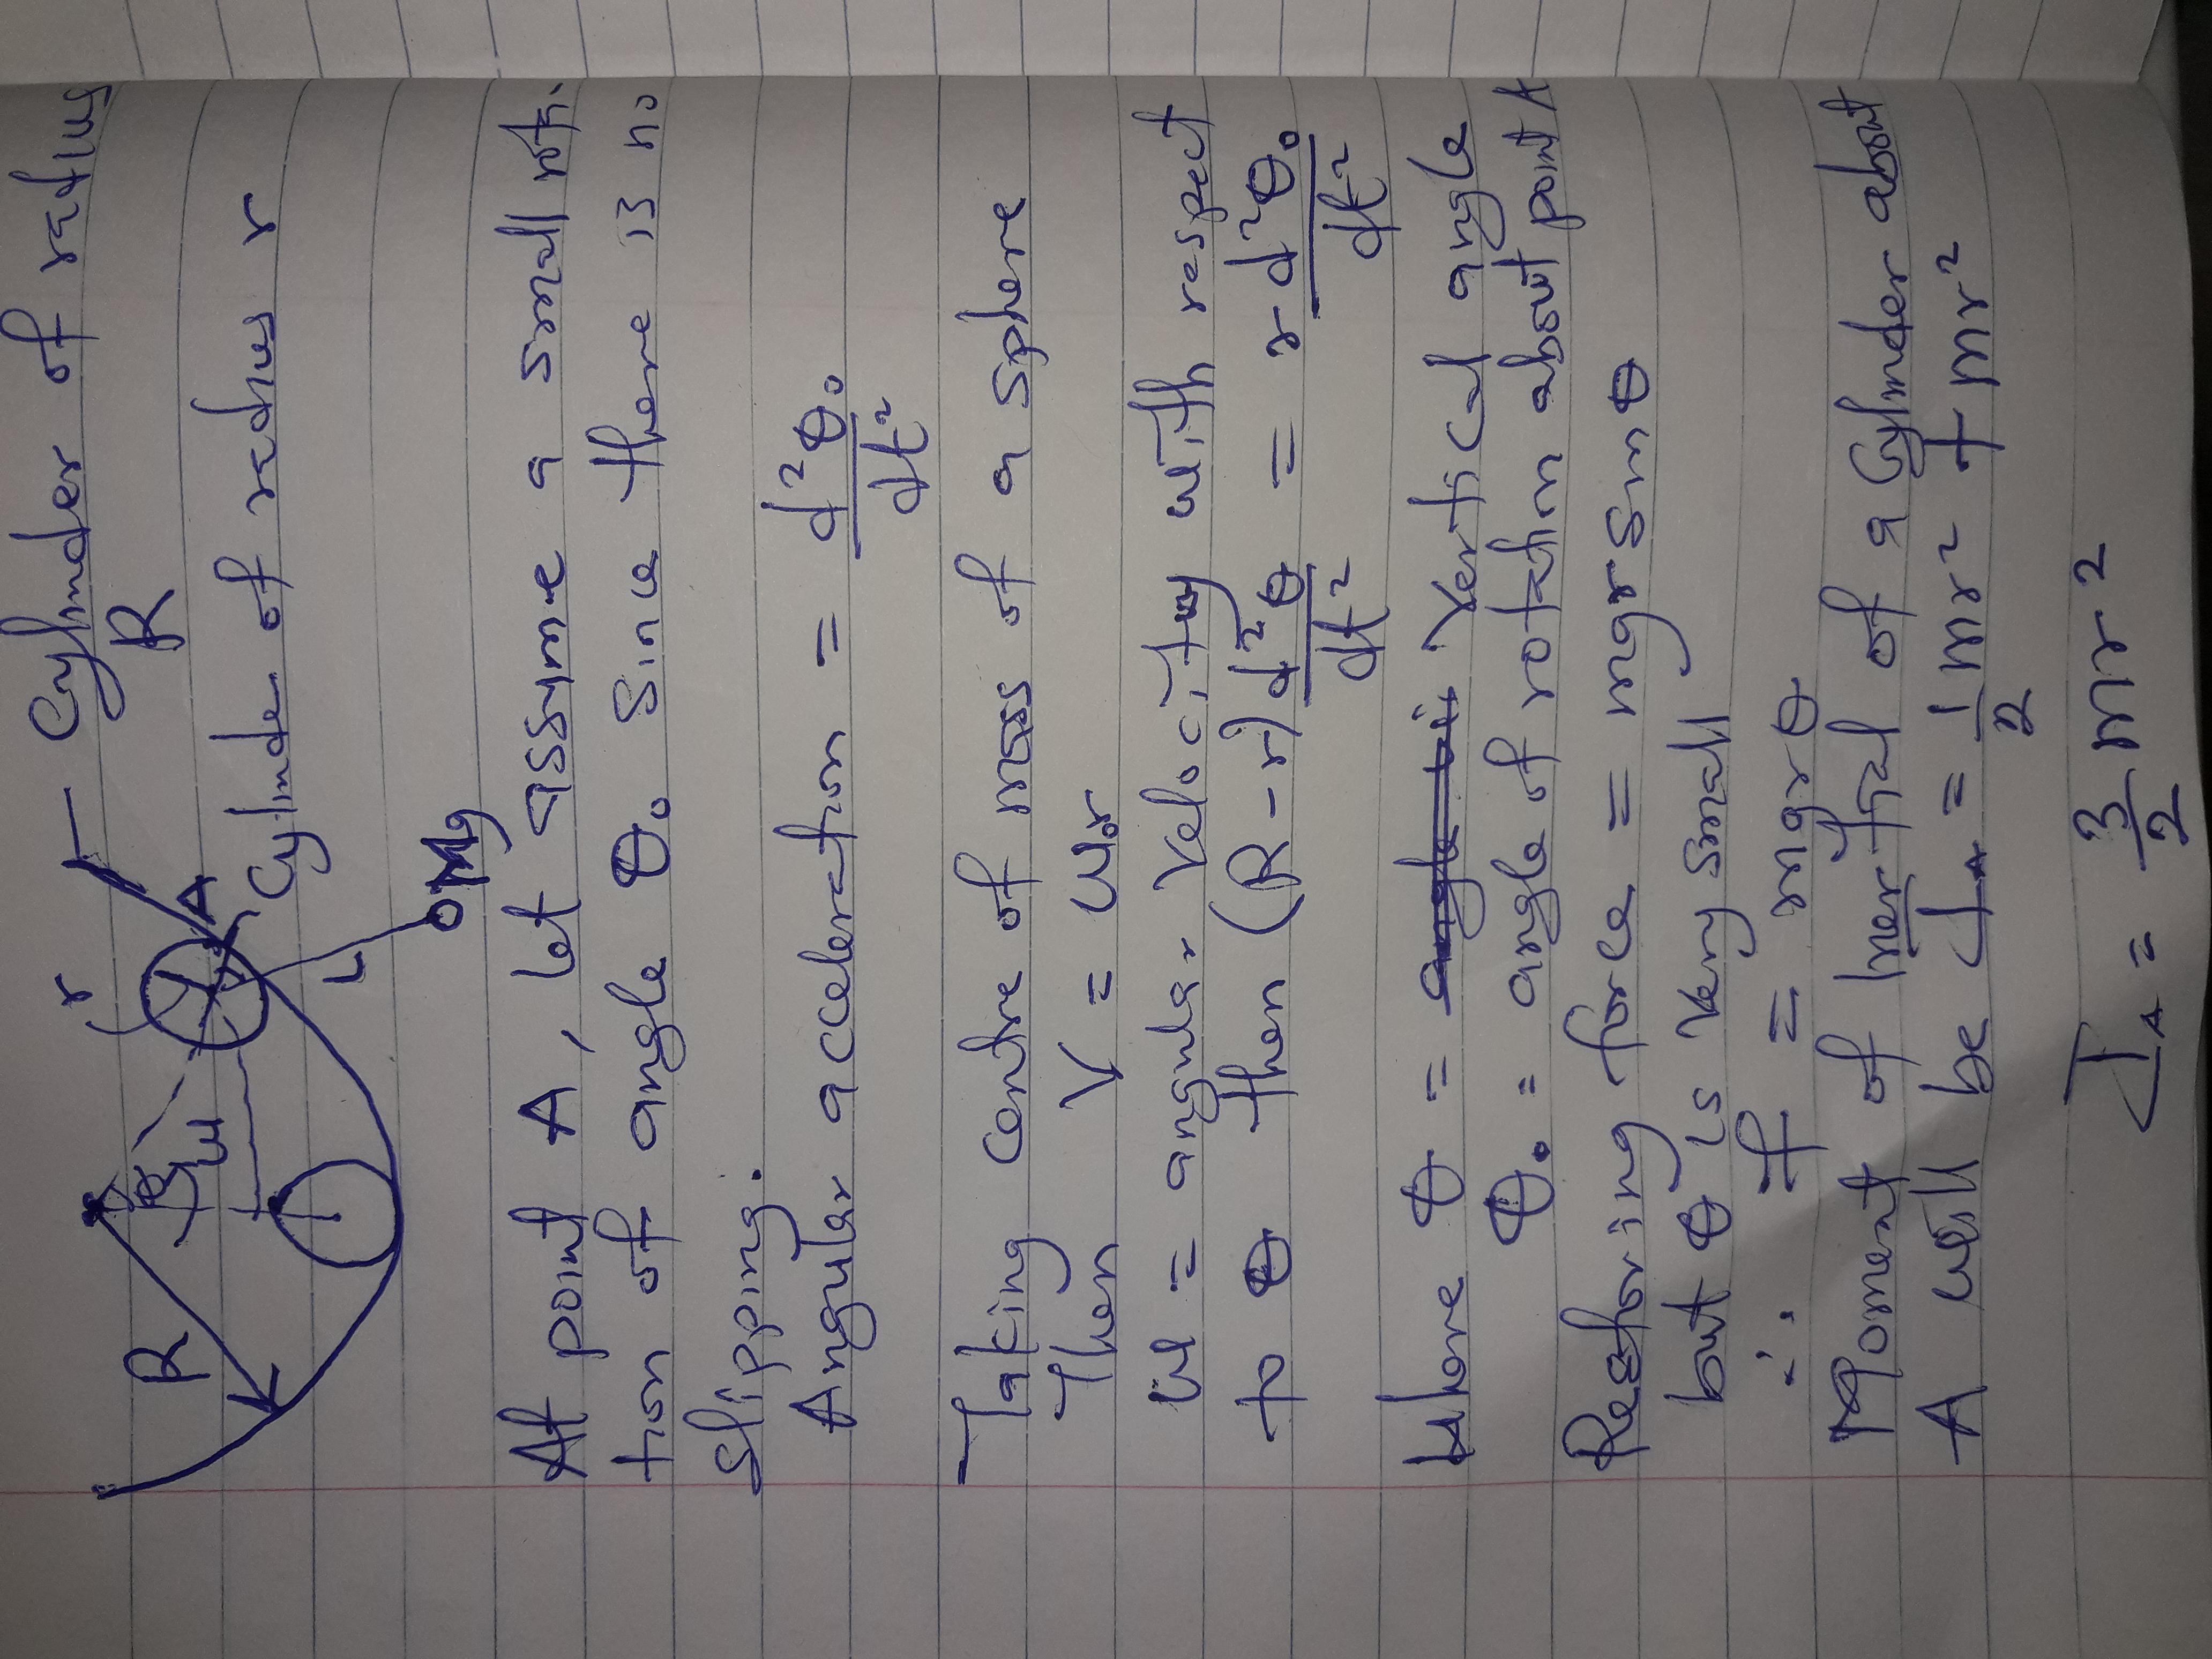 Cylinder of radius
R
r
R
A
Cylinder of radius r
θ
ω
L
Mg
At point A, let assume a small rota-
tion of angle θ₀ Since there is no
slipping.
Angular acceleration = d²θ₀/dt²
Taking centre of mass of a sphere
Then V = ω₀r
ω = angular velocity with respect
to θ then (R - r) d²θ/dt² = r d²θ₀/dt²
Where θ = Vertical angle
θ₀ = angle of rotation about point A
Resthoring force = mgr sin θ
but θ is very small
∴ F = mgrθ
Moment of Inertial of a Cylinder about
A will be I_A = 1/2 mr² + mr²
I_A = 3/2 mr²